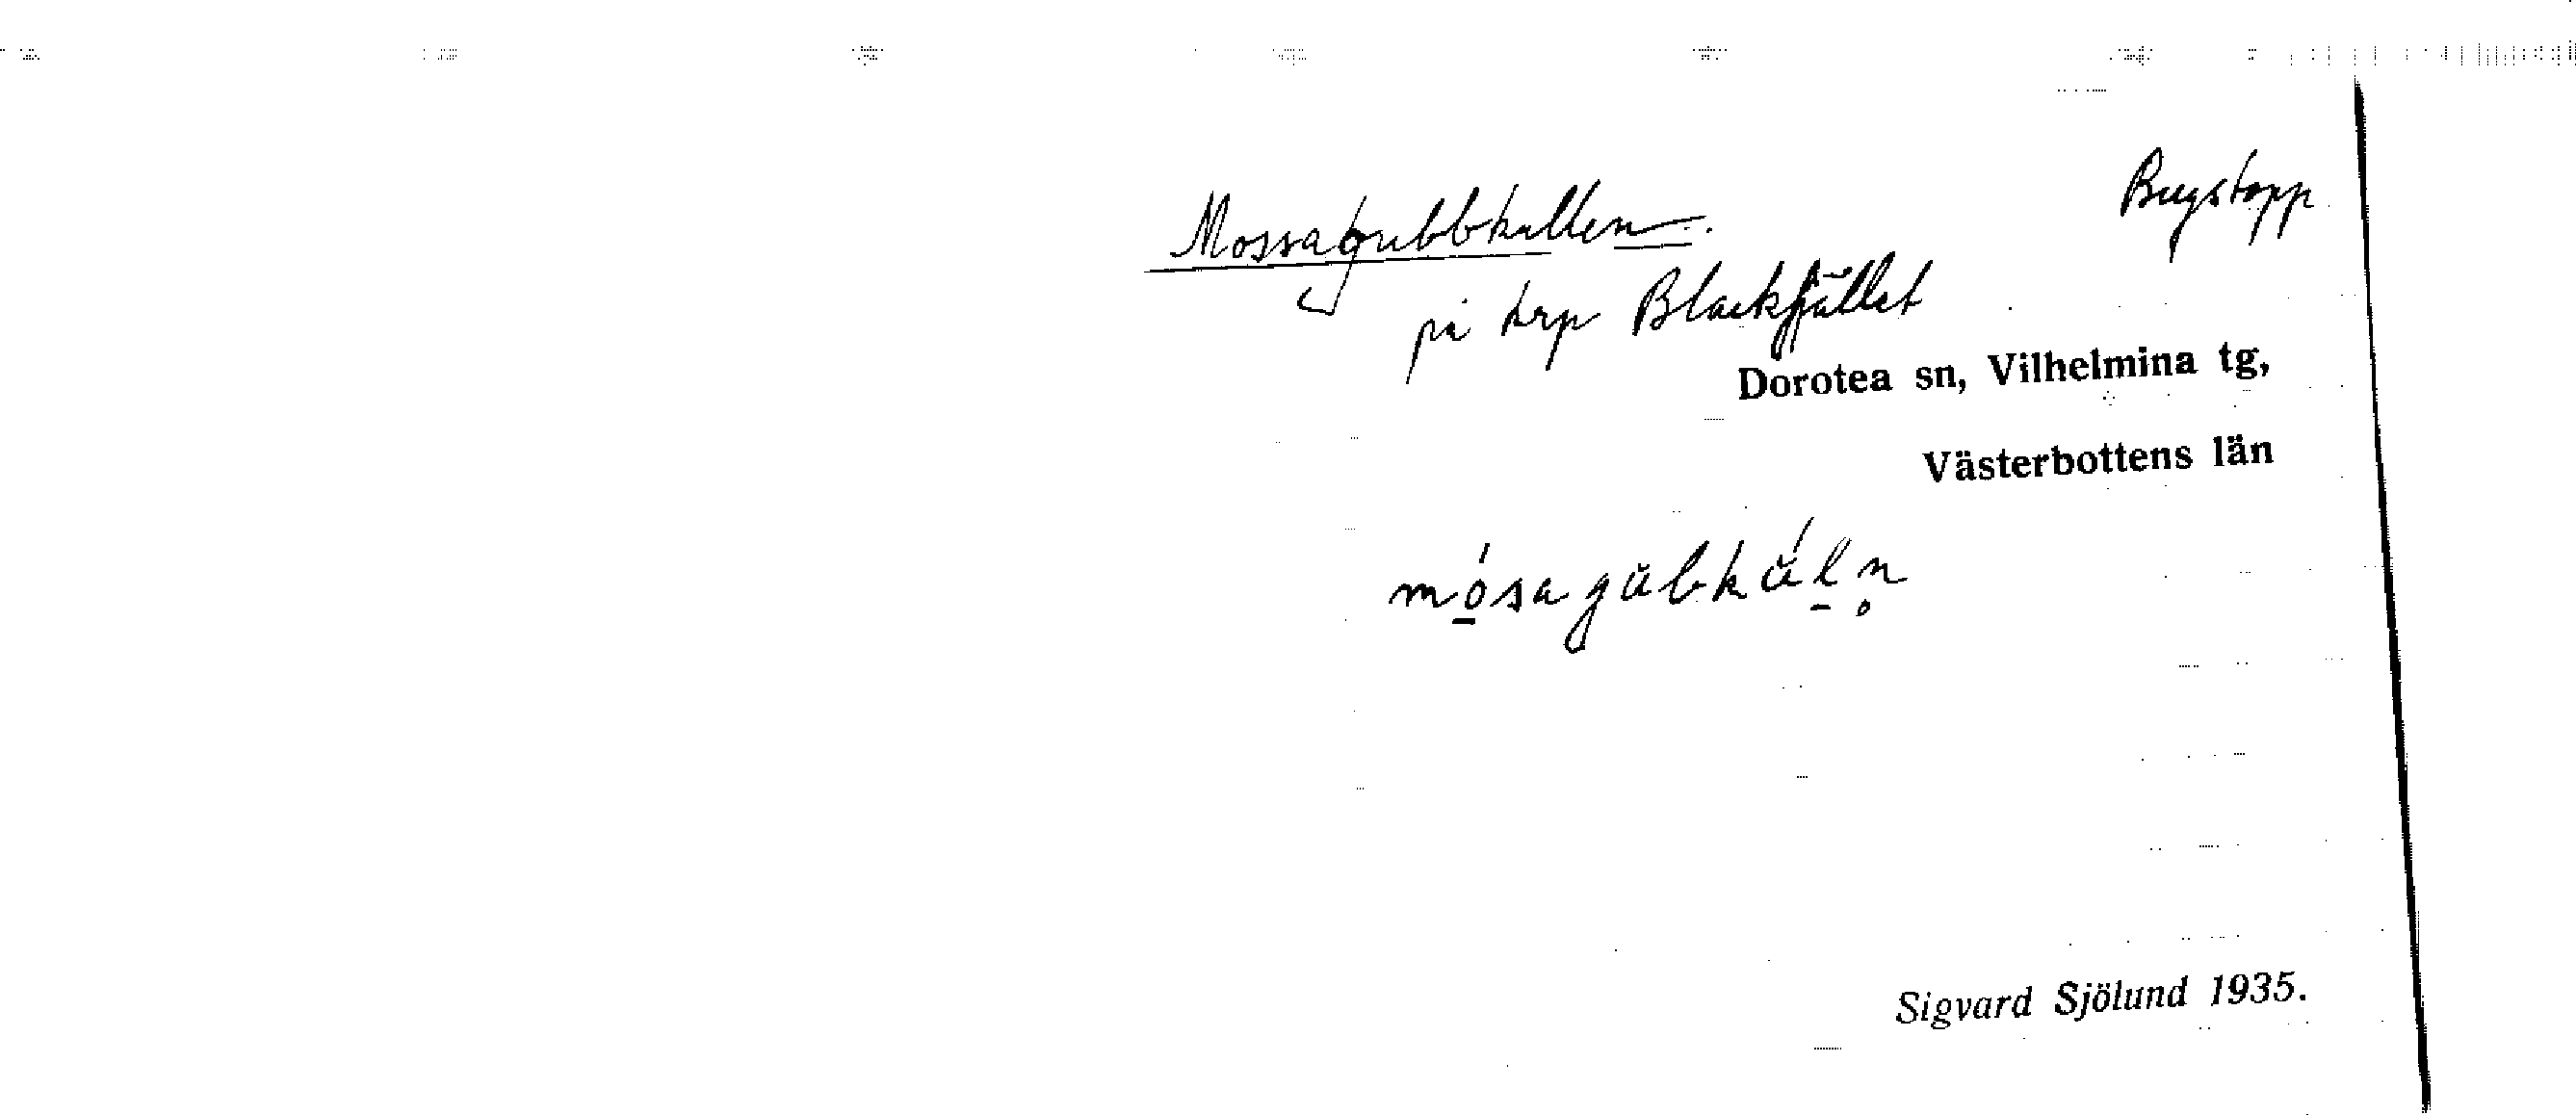 Mossagubbkullen
Bergstopp
på krp Blackfjället
Dorotea sn, Vilhelmina tg,
Västerbottens län
mósagŭbkŭ́ln̥
Sigvard Sjölund 1935.